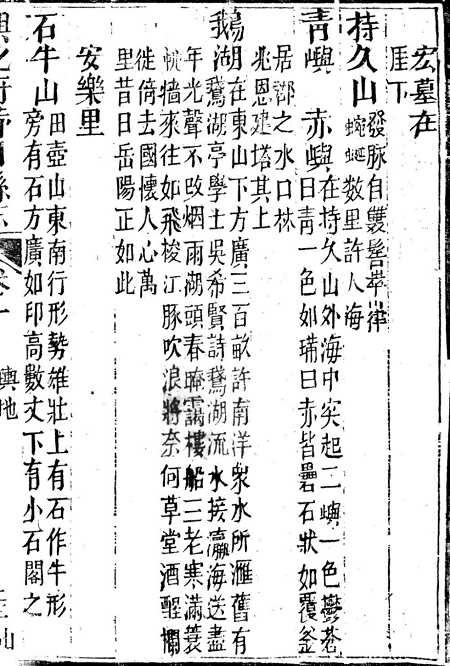 宏墓在
厓下
持久山 發脉自雙髻崒嵂
蜿蜒數里許人海
青嶼 赤嶼 在持久山外海中突起二嶼一色鬱蒼
曰青一色如璊曰赤皆礨石狀如覆釜
居鄰之水口林
兆恩建塔其上
鵝湖 在東山下方廣三百畝許南洋衆水所滙舊有
鵞湖亭學士吳希賢詩鵞湖流水接瀛海送盡
年光聲不改烟雨湖頭春晻靄樓船三老寒滿簑
帆檣來往如飛梭江豚吹浪將奈何草堂酒醒欄
徙倚去國懷人心萬
里昔日岳陽正如此
安樂里
石牛山 田壺山東南行形勢雄壯上有石作牛形
旁有石方廣如印高數丈下有小石閣之
興化府莆田縣志 卷一 輿地
山